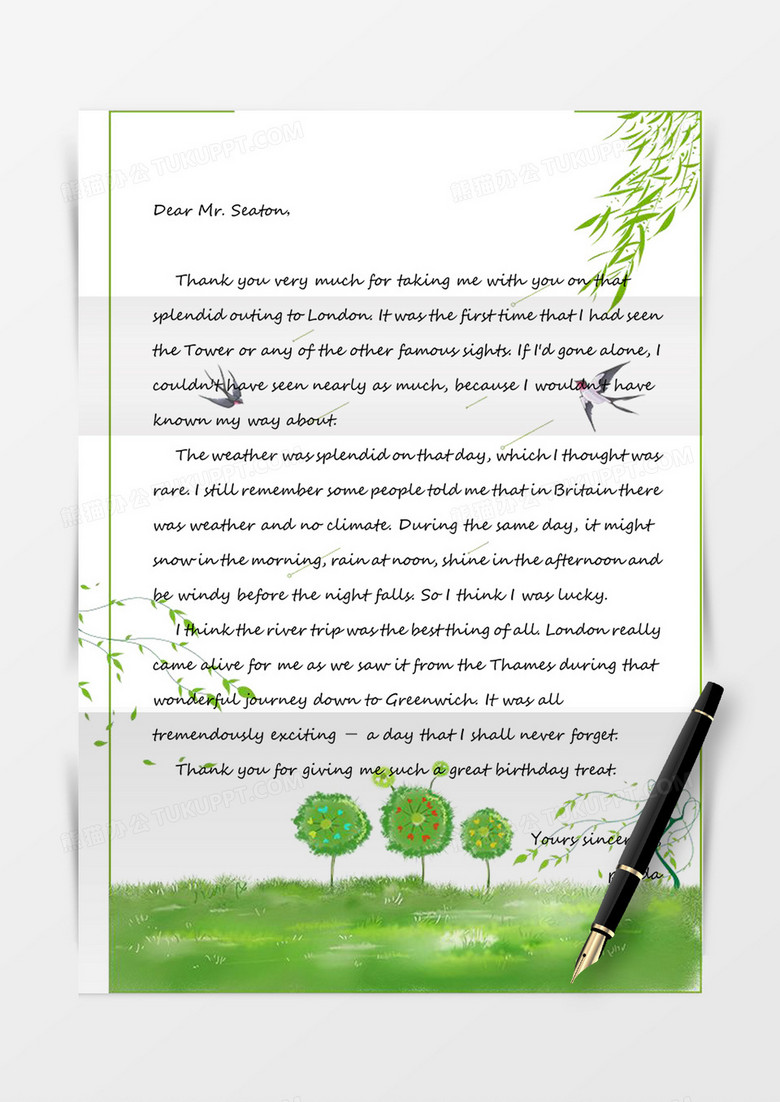 Dear Mr. Seaton,
Thank you very much for taking me with you on that
splendid outing to London. It was the first time that I had seen
the Tower or any of the other famous sights. If I'd gone alone, I
couldn't have seen nearly as much, because I wouldn't have
known my way about.
The weather was splendid on that day, which I thought was
rare. I still remember some people told me that in Britain there
was weather and no climate. During the same day, it might
snow in the morning, rain at noon, shine in the afternoon and
be windy before the night falls. So I think I was lucky.
I think the river trip was the best thing of all. London really
came alive for me as we saw it from the Thames during that
wonderful journey down to Greenwich. It was all
tremendously exciting — a day that I shall never forget.
Thank you for giving me such a great birthday treat.
Yours
熊猫办公 TUKUPPT.COM